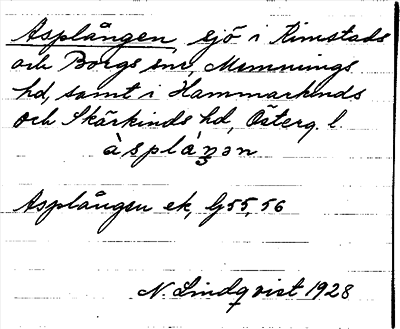 Asplången, sjö i Kimstads
och Borgs snr, Memmings
hd, samt i Hammarkinds
och Skärkinds hd, Österg. l.
àsplåŋən
Asplången ek, bl 55, 56
N. Lindqvist 1928